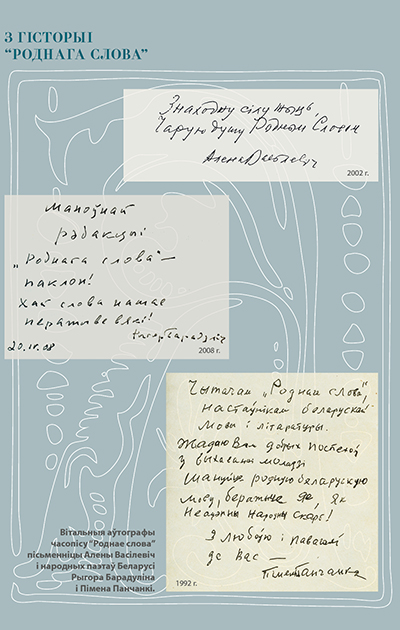 З ГІСТОРЫІ
“РОДНАГА СЛОВА”
Знаходжу сілу жыць,
Чарую душу Родным Словам
Алена Васілевіч
2002 г.
рэдакцыі
„Роднага слова“ —
паклон!
Хай слова нашае
перажыве вякі!
20.IV.08
2008 г.
Чытачам „Роднага слова“,
настаўнікам беларускай
мовы і літаратуры.
Жадаю Вам добрых поспехаў
у выхаванні моладзі
Шануйце родную беларускую
мову, беражыце яе, як
народны скарб!
З любоўю і павагай
да Вас —
Пімен Панчанка
1992 г.
Вітальныя аўтографы
часопісу “Роднае слова”
пісьменніцы Алены Васілевіч
і народных паэтаў Беларусі
Рыгора Барадуліна
і Пімена Панчанкі.